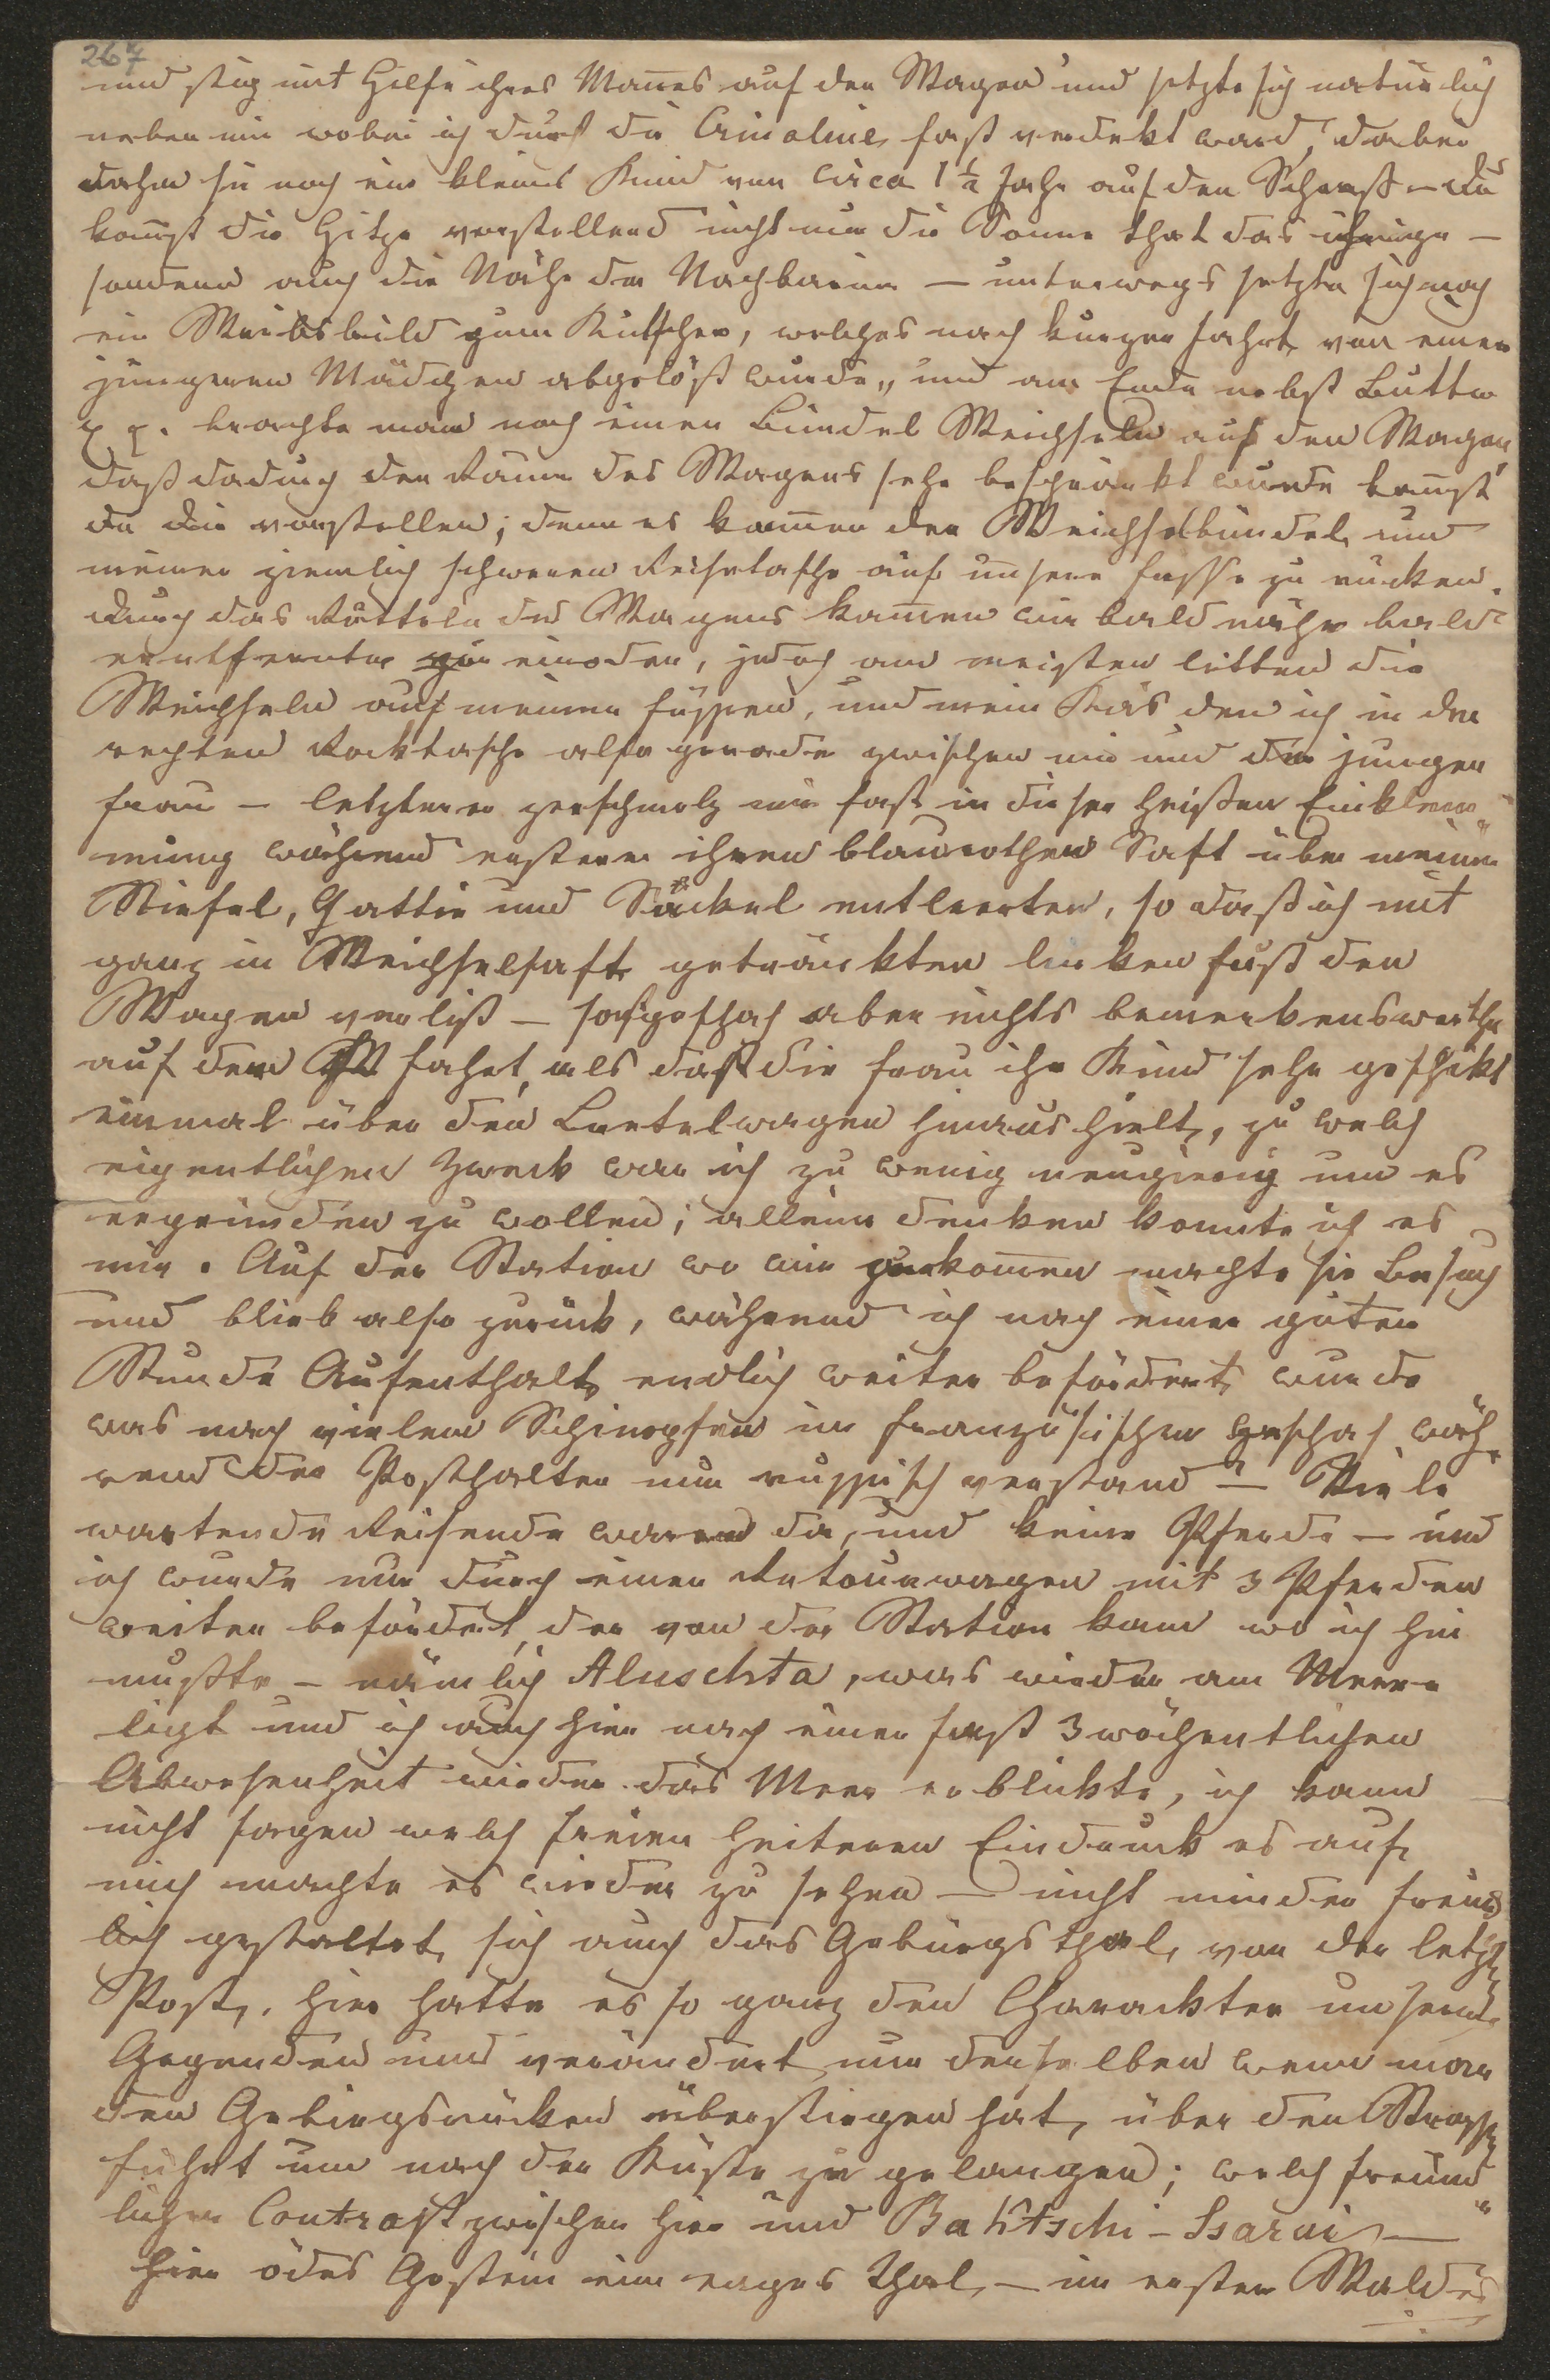 267
und stig mit Hilfe ihres Mannes auf den Wagen und setzte sich natürlich
neben mir wobei ich durch die Crinoline fast verdekt ward, dabei
nahm sie noch ein kleines Kind von circa 1½ Jahr auf den Schooß – du
kannst die Hitze vorstellend nicht nur die Sonne that das ihrige –
sondern auch die Nähe der Nachbarin – unterwegs setzte sich noch
ein Weibsbild zum Kutscher, welches nach kurzer Fahrt von einem
jüngeren Mädchen abgelößt wurde, und am Ende nebst Butter
x x. brachte man noch einen Bündel Weichseln auf den Wagen,
daß dadurch der Raum des Wagens sehr beschränkt wurde kannst
du dir vorstellen; denn es kamen der Weichselbündel und
meiner ziemlich schweren Reisetasche auf unsere Füsse zu rücken.
Durch das Rütteln des Wagens kamen wir bald näher bald
entfernter zu einander, jedoch am meisten litten die
Weichseln auf meinen Füssen, und mein Käs den ich in der
rechten Rocktasche also gerade zwischen mir und der jungen
Frau – letzterer zerschmolz mir fast in dieser heißen Einklem„
mung während erstere ihren blaurothen Saft über meine
Stiefel, Gattie und Säckel entleerten, so daß ich mit
ganz in Weichselsaft getränkten linken Fuß den
Wagen verliß – sonst geschah aber nichts bemerkenswerthes
auf der Fahrt, als daß die Frau ihr Kind sehr geschikt
einmal über den Leiterwagen hinaus hielt, zu welch
eigentlichen Zweck war ich zu wenig neugierig um es
ergründen zu wollen; allein denken konnte ich es
mir. Auf der Station wo wir ankamen machte sie Besuch
und blieb also zurück, während ich nach einer guten
Stunde Aufenthalt, endlich weiter befördert wurde
was nach vielem Schimpfen im französischen geschah wäh„
rend der Posthalter nur russisch verstand – Viele
wartende Reisende waren da, und keine Pferde – und
ich wurde nur durch einen Retourwagen mit 3 Pferden
weiter befördert, der von der Station kam wo ich hin
mußte – nämlich Aluschta, was wieder am Meere
ligt und ich auch hier nach einer fast 3 wöchentlichen
Abwesenheit wieder das Meer erblickte, ich kann
nicht sagen welch freien heiteren Eindruck es auf
mich machte es wieder zu sehen – nicht minder freund
lich gestaltet sich auch das Gebürgsthal, von der letzten
Post, hier hatte es so ganz den Charackter unserer
Gegenden und verändert nur denselben wenn man
den Gebirgsrücken überstiegen hat, über den Strasse
führt um nach der Küste zu gelangen; welch freund„
licher Contrast zwischen hier und Bahtschi-Ssarai –
hier ödes Gestein ein enges Thal, – im ersten Waldes